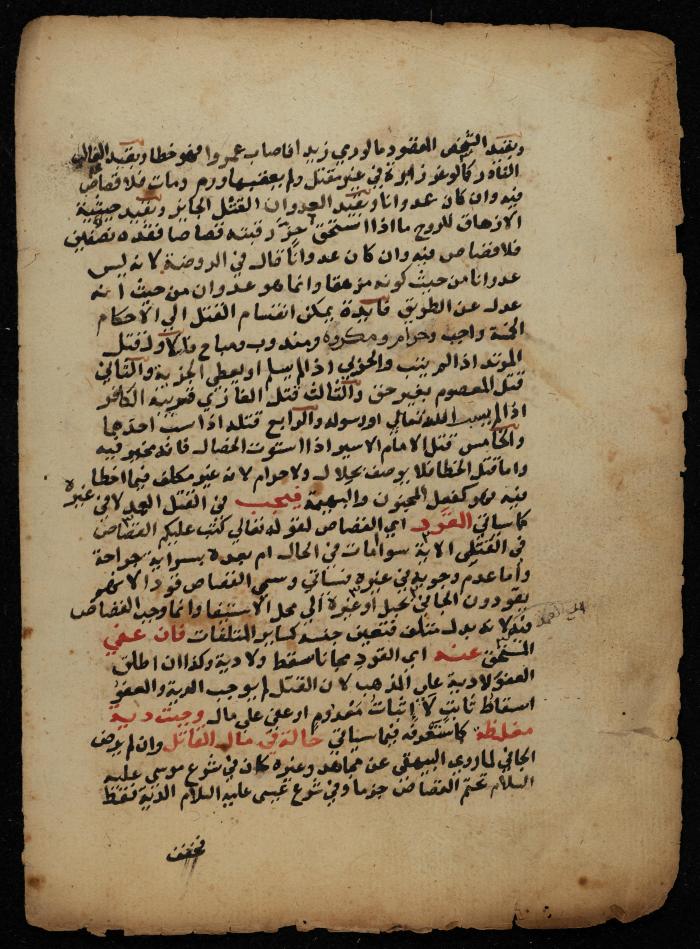 وبقيد الشخص المقصود ما لو رمي زيدا فاصاب عمروا فهو خطا وبقيد الغالب
النادر كما لو غرز ابرة في غير مقتل ولم يعقبها ورم ومات فلا قصاص
فيه وان كان عدوانا وبقيد العدوان القتل الجايز وبقيد حيثية
الازهاق للروح ما اذا استحق حز رقبته قصاصا فقده نصفين
فلا قصاص فيه وان كان عدوانا قال في الروضة لانه ليس
عدوانا من حيث كونه مزهقا وانما هو عدوان من حيث انه
عدل عن الطريق فايدة يمكن انقسام القتل الي الاحكام
الخمسة واجب وحرام ومكروه ومندوب ومباح فالاول قتل
المرتد اذا لم يتب والحربي اذا لم يسلم او يعطي الجزية والثاني
قتل المعصوم بغير حق والثالث قتل الغازي قريبه الكافر
اذا لم يسب الله تعالي او رسوله والرابع قتله اذا سب احدهما
والخامس قتل الامام الاسير اذا استوت الخصال فانه مخير فيه
واما قتل الخطا فلا يوصف بحلال ولا حرام لانه غير مكلف فيما اخطا
فيه فهو كفعل المجنون والبهيمة فيجب في القتل العمد لا في غيره
كما سياتي القود اي القصاص لقوله تعالي كتب عليكم القصاص
في القتلي الاية سوا مات في الحال ام بعده بسراية جراحة
واما عدم وجوبه في غيره فسياتي وسمي القصاص قودا لانهم
يقودون الجاني بحبل او غيره الي محل الاستيفا وانما وجب القصاص
فيه لانه بدل متلف فتعين جنسه كساير المتلفات فان عفي
المستحق عنه اي القود مجانا سقط ولا دية وكذا ان اطلق
العفو لا دية علي المذهب لان القتل لم يوجب الدية والعفو
اسقاط ثابت لا اثبات معدوم او عفي علي مال وجبت دية
مغلظة كما ستعرفه فيما سياتي حالة في مال القاتل وان لم يرض
الجاني لما روي البيهقي عن مجاهد وغيره كان في شرع موسي عليه
السلام تحتم القصاص جزما وفي شرع عيسي عليه السلام الدية فقط
فخفف